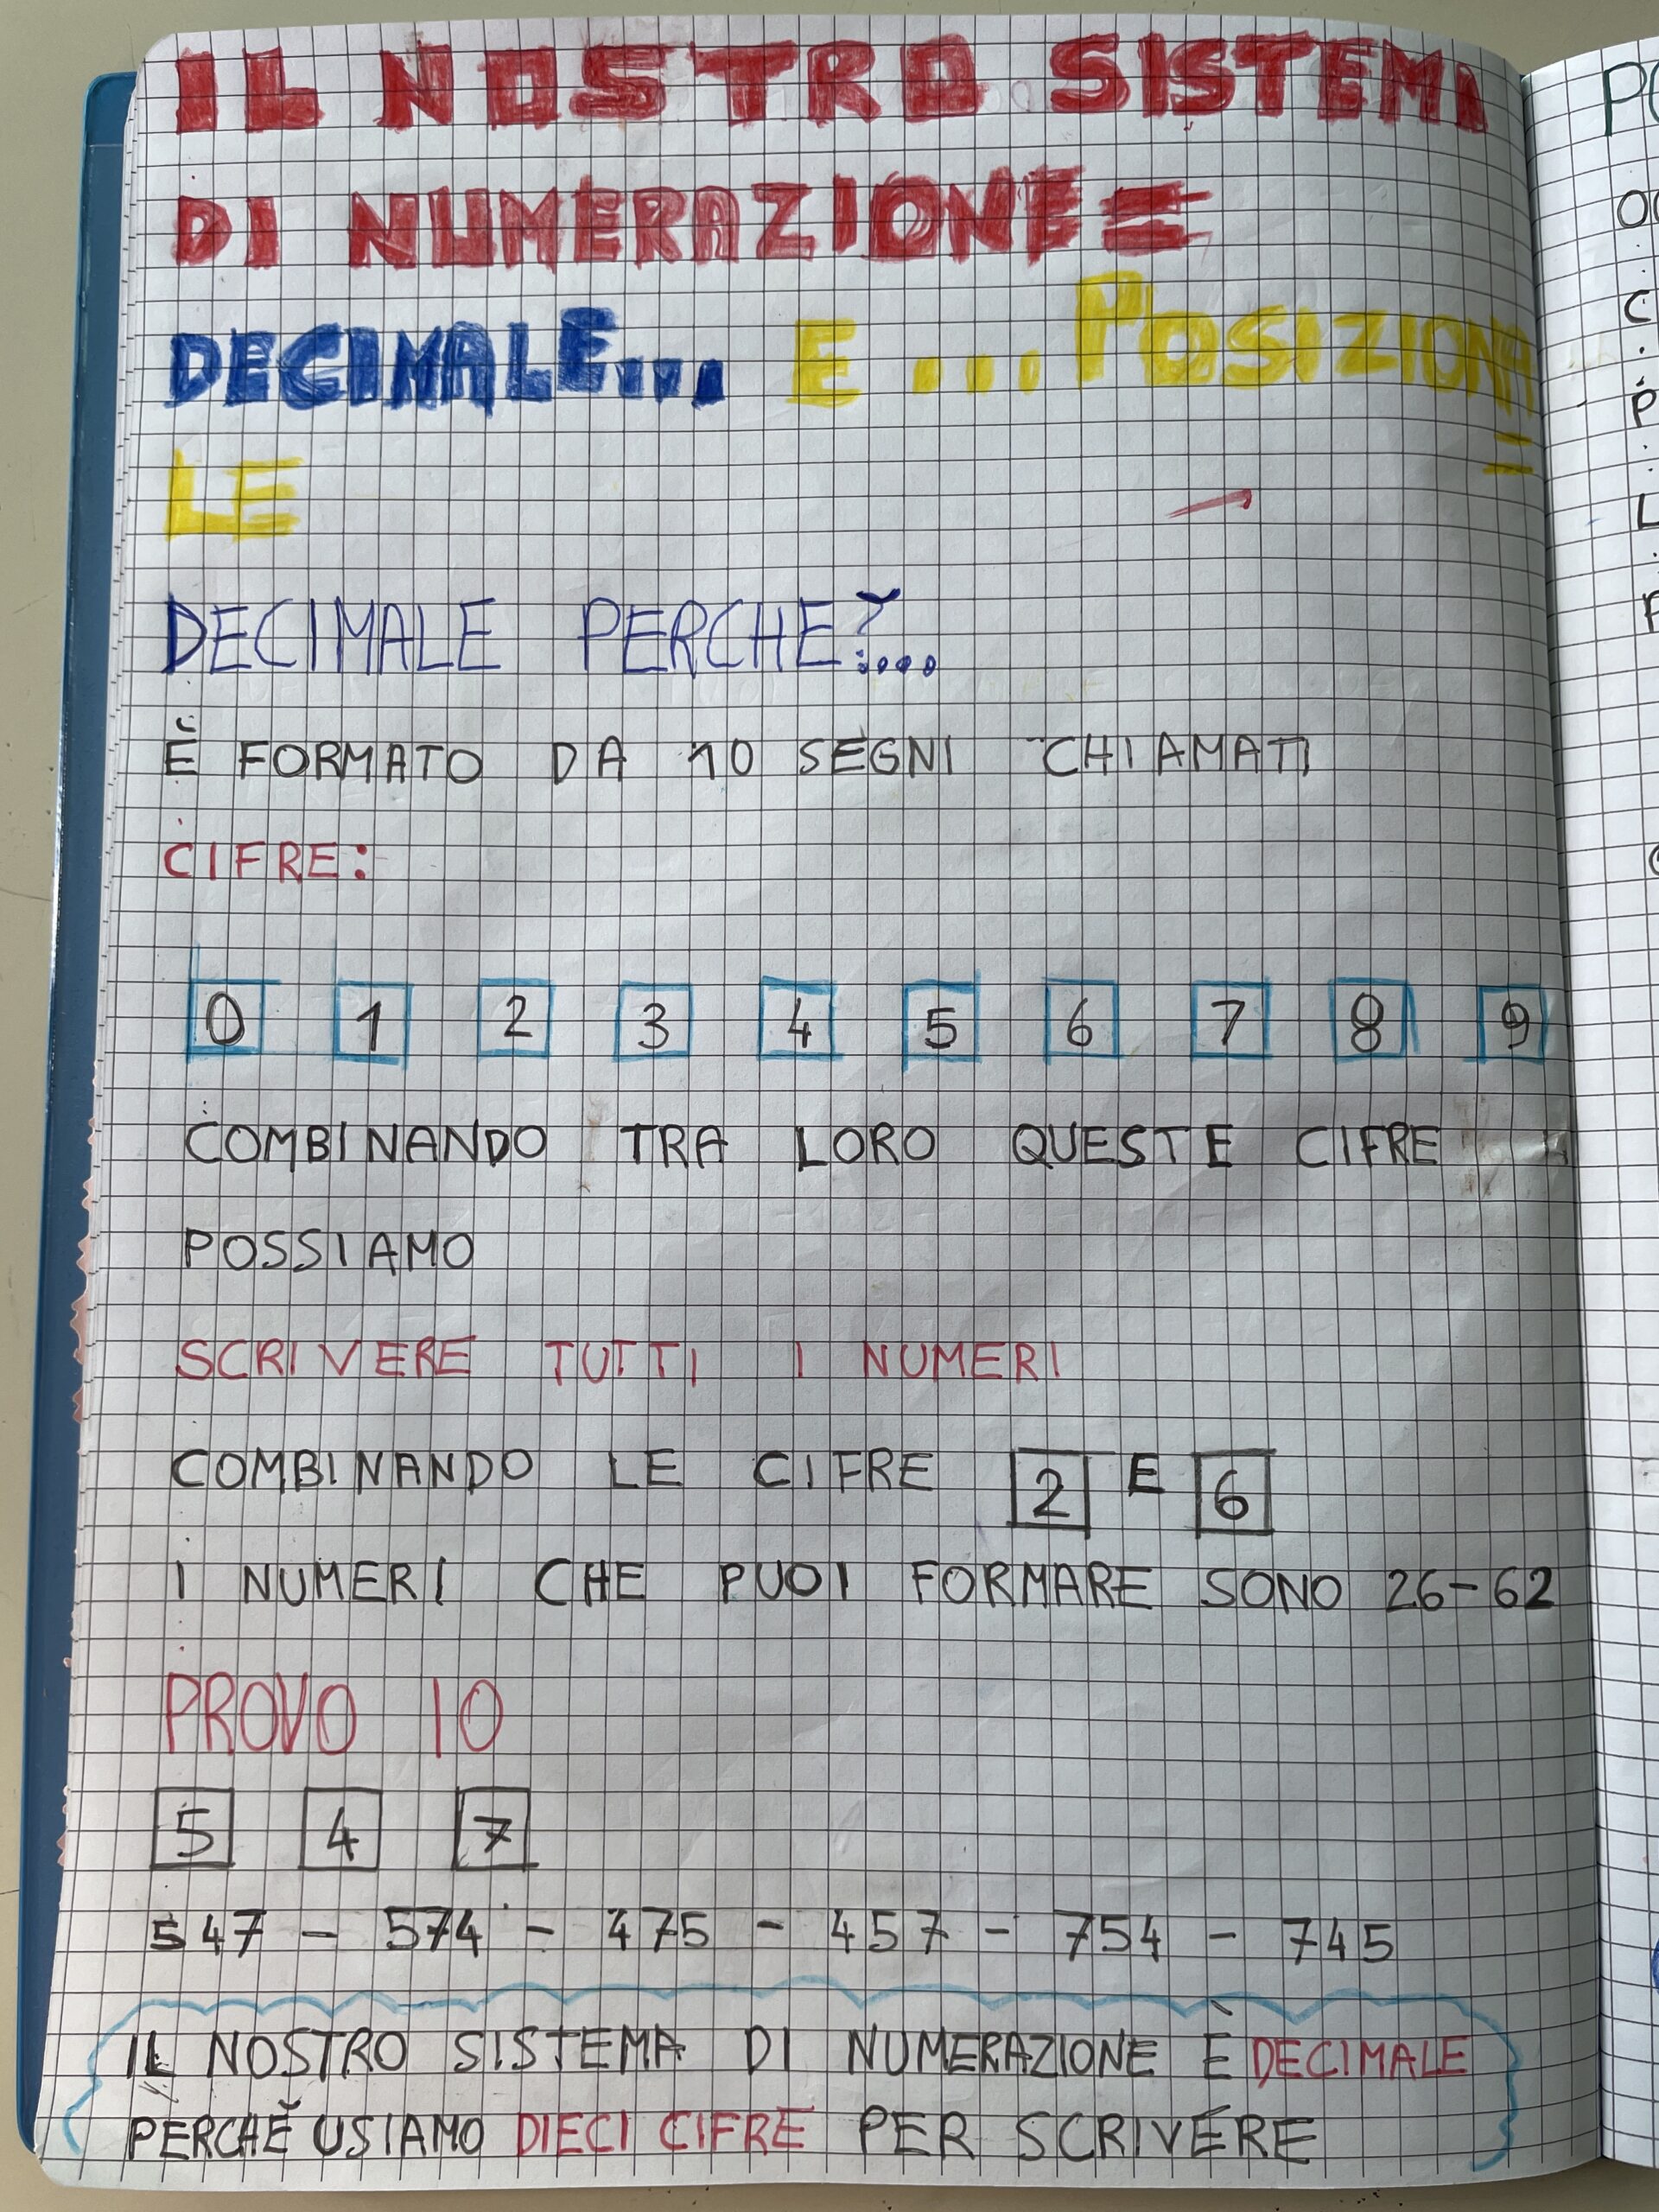 IL NOSTRO SISTEMI
DI NUMERAZIONE=
DECIMALE... E ... POSIZIONA
=
LE
DECIMALE PERCHE?...
È FORMATO DA 10 SEGNI CHIAMATI
CIFRE:
0 1 2 3 4 5 6 7 8 9
COMBINANDO TRA LORO QUESTE CIFRE
POSSIAMO
SCRIVERE TUTTI I NUMERI
COMBINANDO LE CIFRE 2 E 6
I NUMERI CHE PUOI FORMARE SONO 26-62
PROVO IO
5 4 7
547 - 574 - 475 - 457 - 754 - 745
IL NOSTRO SISTEMA DI NUMERAZIONE È DECIMALE
PERCHÉ USIAMO DIECI CIFRE PER SCRIVERE